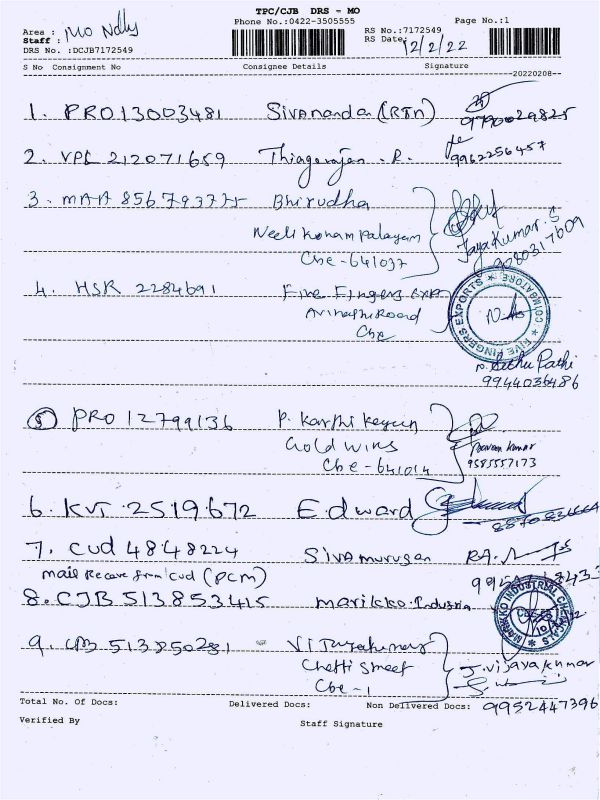 TPC/CJB DRS - MO
Phone No.:0422-3505555 Page No.:1
Area : Mo Ndly RS No.:7172549
Staff : RS Date: 12/2/22
DRS No. :DCJB7172549
S No Consignment No Consignee Details Signature
--20220208--
1. PRO13003481 Sivananda (RTn)
2. VPL 212071659 Thiagarajan . R. 9962256457
3. MAA 856793775 Bhirudha
Neelikonampalayam Jayakumar.S
Cbe - 641037 9080317609
4. HSR 2284691 Five Fingers Exp
Avinashi Road
Cbe
FIVE FINGERS EXPORTS * COIMBATORE *
N. Sethu Pathi
9944036486
5 PRO 12799136 P. Karthikeyan
Goldwins Praveen Kumar
Cbe - 641014 9585557173
6. KVT 2519672 Edward
7. CUD 4848224 Sivamurugan RA.
mail Recave from CUD (PCM)
8. CJB 513853415 Marikko. Industria
MARIKKO INDUSTRIAL CHEMICALS
9. CJB 513850281 Vijayakumar
Chetti Street J.Vijayakumar
Cbe - 1
Total No. Of Docs: Delivered Docs: Non Delivered Docs: 9952447396
Verified By Staff Signature